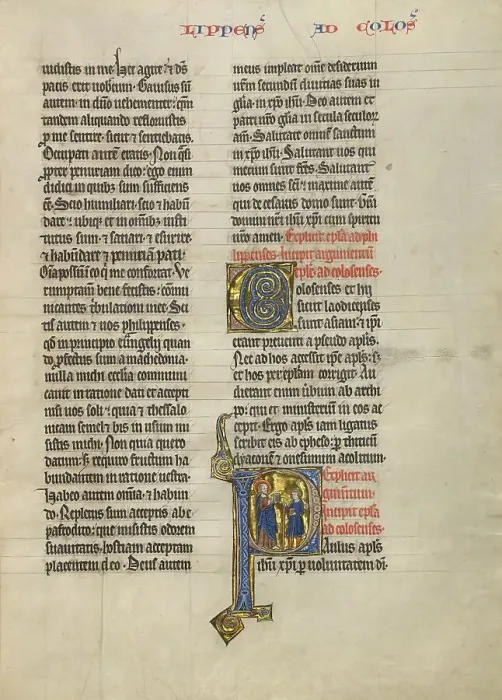 LIPPENSC AD COLOSC
uidistis in me. Hec agite: ⁊ ds
pacis erit uobiscum. Gauisus su
autem in dno uehementer: qm
tandem aliquando refloruistis
p me sentire. sicut ⁊ sentiebatis.
Occupati autē eratis. Non q̄si
ppter penuriam dico: ego enim
didici in quibz sum sufficiens
eē. Scio humiliari. scio ⁊ habū
dare: ubiqz et in omībz insti
tutus sum. ⁊ satiari. ⁊ esurire.
⁊ habūdare ⁊ penuriam pati.
Oīa possū ī eo q̄ me confortat. Ve
rumptamen bene fecistis: cōmu
nicantes tribulationi mee. Sci
tis autem ⁊ uos philippenses.
qd in principio euūgelij quan
do pfectus sum a machedonia.
nulla michi ecclīa communi
cauit in ratione dati et accepti
nisi uos soli: quia ⁊ thessalo
nicam semel ⁊ bis in usum mi
sistis michi. Non quia quero
datum: s; requiro fructum ha
bundantem in ratione uestra.
Habeo autem omnia. ⁊ habun
do. Repletus sum acceptis abe
pafrodito: que misistis odorem
suauitatis. hostiam acceptam
placentem deo. Deus autem
meus impleat omē desiderium
urm secundū diuitias suas in
gla. in xpo ihu. Deo autem et
patri nro gla in secula seculoꝝ
am. Salutate omnē sanctum
in xpo ihu. Salutant uos qui
mecum sunt frs. Salutant
uos omnes sci. maxime autē
qui de cesaris domo sunt. Gra
domini nri ihu xpi cum spiritu
uro amen. Explicit epla ad phi
lippenses. Incipit argumentū
eple ad colosenses.
Colosenses et hij
sicut laodicenses
sunt asiani. ⁊ ipi
erant preuenti a pseudo aplis.
Nec ad hos accessit ipe apls: s;
et hos per eplam corrigit. Au
dierant enim uerbum ab archi
po: qui et ministerium in eos ac
cepit. Ergo apls iam ligatus
scribit eis ab epheso: p thiticū
dyaconē ⁊ onesimum acolitum.
Explicit ar
gumentum.
Incipit epla
ad colosenses.
Paulus apls
ihu xpi p uoluntatem di.